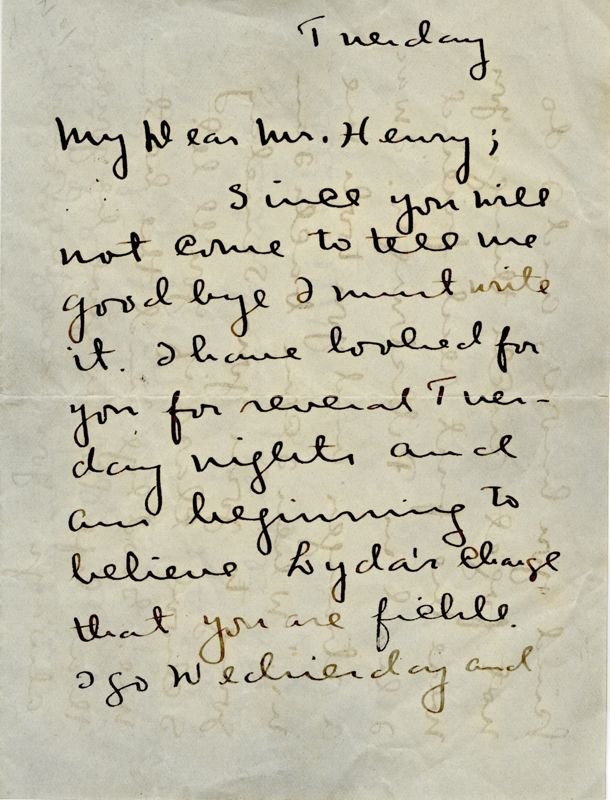 Tuesday
My Dear Mr. Henry;
Since you will
not come to tell me
good bye I must write
it. I have looked for
you for several Tues-
day nights and
am beginning to
believe Lyda's charge
that you are fickle.
I go Wednesday and